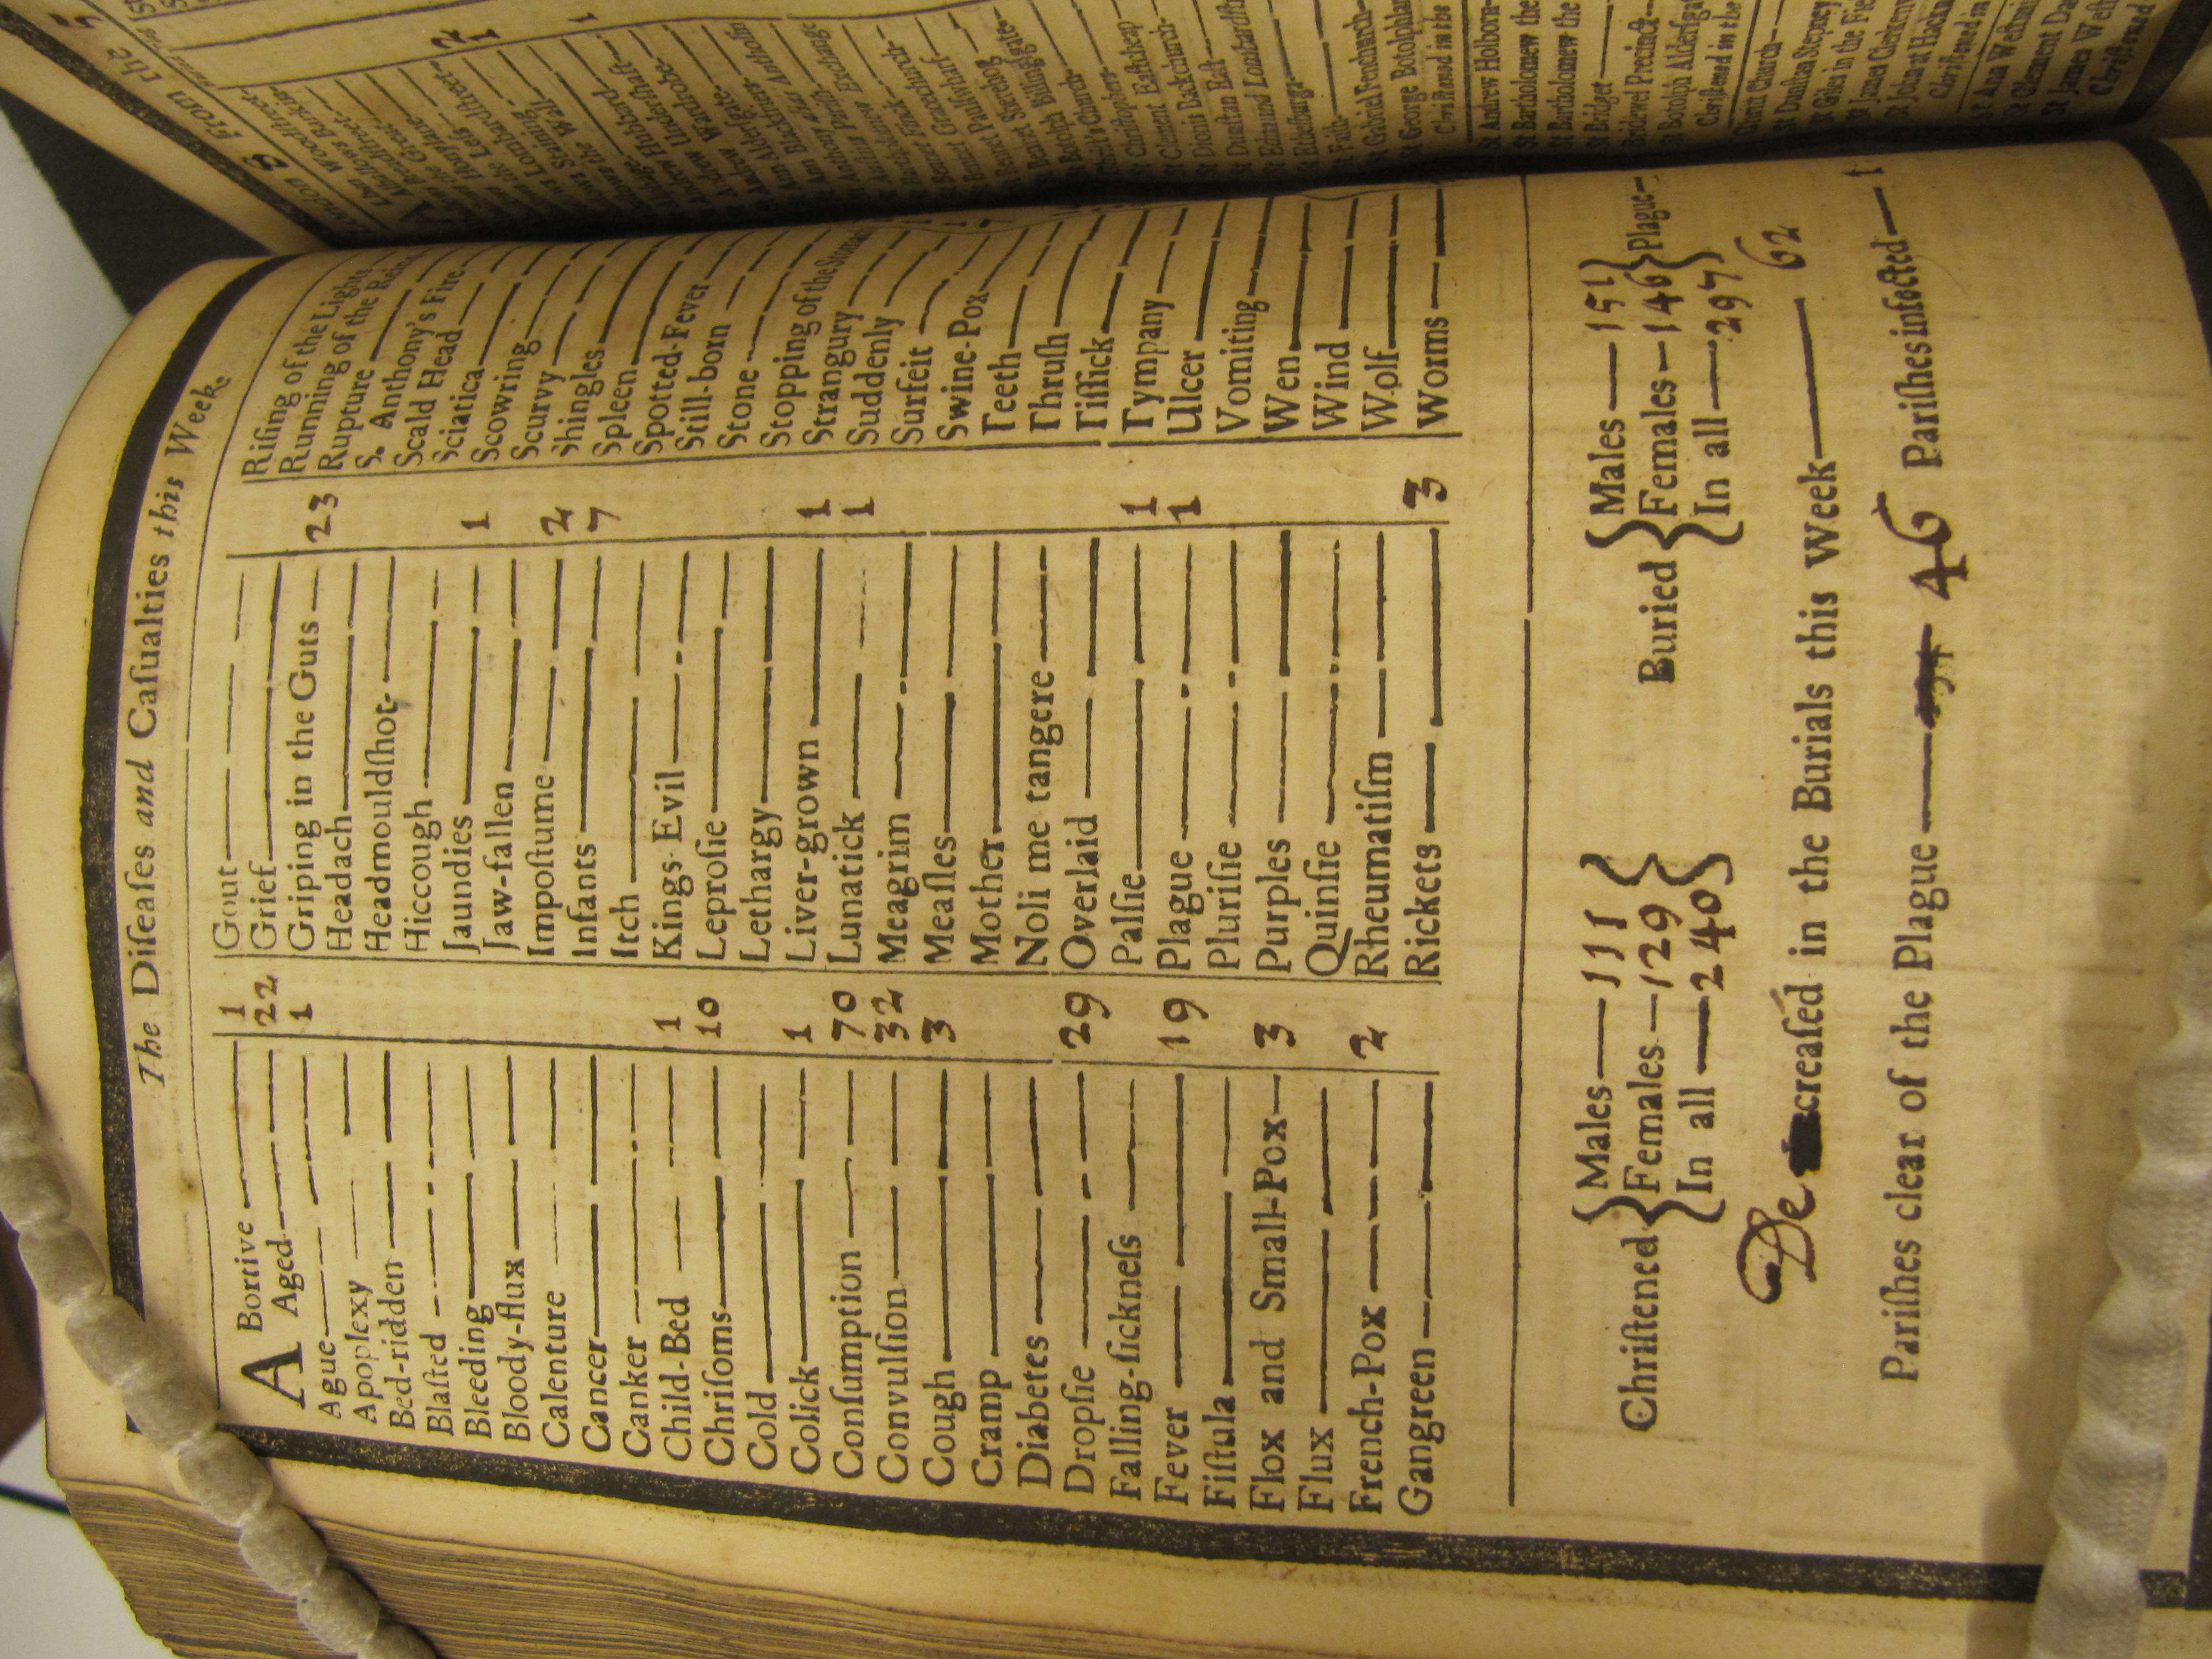 The Diſeaſes and Caſualties this Week.
A Bortive 1
Aged 22
Ague 1
Apoplexy
Bed-ridden
Blaſted
Bleeding
Bloody-flux
Calenture
Cancer
Canker
Child-Bed 1
Chriſoms 10
Cold
Colick 1
Conſumption 70
Convulſion 32
Cough 3
Cramp
Diabetes
Dropſie 29
Falling-ſickneſs
Fever 19
Fiſtula
Flox and Small-Pox 3
Flux
French-Pox 2
Gangreen
Gout
Grief
Griping in the Guts 23
Headach
Headmouldſhot
Hiccough
Jaundies 1
Jaw-fallen
Impoſtume 2
Infants 7
Itch
Kings-Evil
Leproſie
Lethargy
Liver-grown 1
Lunatick 1
Meagrim
Meaſles
Mother
Noli me tangere
Overlaid
Palſie 1
Plague 1
Pluriſie
Purples
Quinſie
Rheumatiſm
Rickets 3
Riſing of the Lights
Running of the Reins
Rupture
S. Anthony's Fire
Scald Head
Sciatica
Scowring
Scurvy
Shingles
Spleen
Spotted-Fever
Still-born
Stone
Stopping of the Stomach
Strangury
Suddenly
Surfeit
Swine-Pox
Teeth
Thruſh
Tiſſick
Tympany
Ulcer
Vomiting
Wen
Wind
Wolf
Worms
Chriſtened { Males 111 Females 129 In all 240 }
Buried { Males 151 Females 146 In all 297 } Plague
Decreaſed in the Burials this Week 62
Pariſhes clear of the Plague 46 Pariſhes infected 1
From the 5
St Andrew Holborn
St Bartholomew the
St Bartholomew the
St Bridget
Bridewel Precinct
St Dunſtan Stepney
St Giles in the
St James Clerkenw
St John at Hackn
St Ann Weſtmi
St Clement Da
St James Weſt